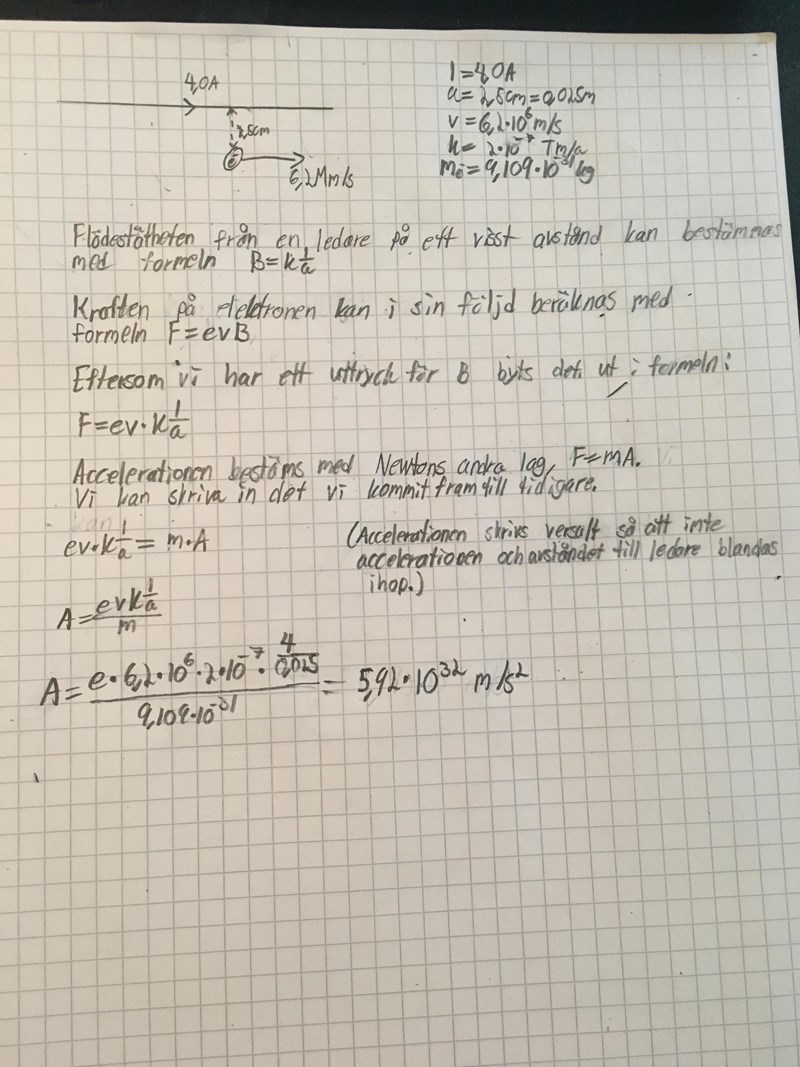 4,0A
2,5cm
e
6,2Mm/s
I=4,0A
a= 2,5cm=0,025m
v=6,2·10⁶m/s
k= 2·10⁻⁷ Tm/a
mē=9,109·10⁻³¹kg
Flödestätheten från en ledare på ett visst avstånd kan bestämmas
med formeln B=k I/a
Kraften på elektronen kan i sin följd beräknas med
formeln F=evB
Eftersom vi har ett uttryck för B byts det ut i formeln:
F=ev·k I/a
Accelerationen bestäms med Newtons andra lag, F=mA.
Vi kan skriva in det vi kommit fram till tidigare.
ev·k I/a = m·A
(Accelerationen skrivs versalt så att inte
accelerationen och avståndet till ledare blandas
ihop.)
A= evk I/a / m
A= e·6,2·10⁶·2·10⁻⁷· 4/0,025 / 9,109·10⁻³¹ = 5,92·10³² m/s²